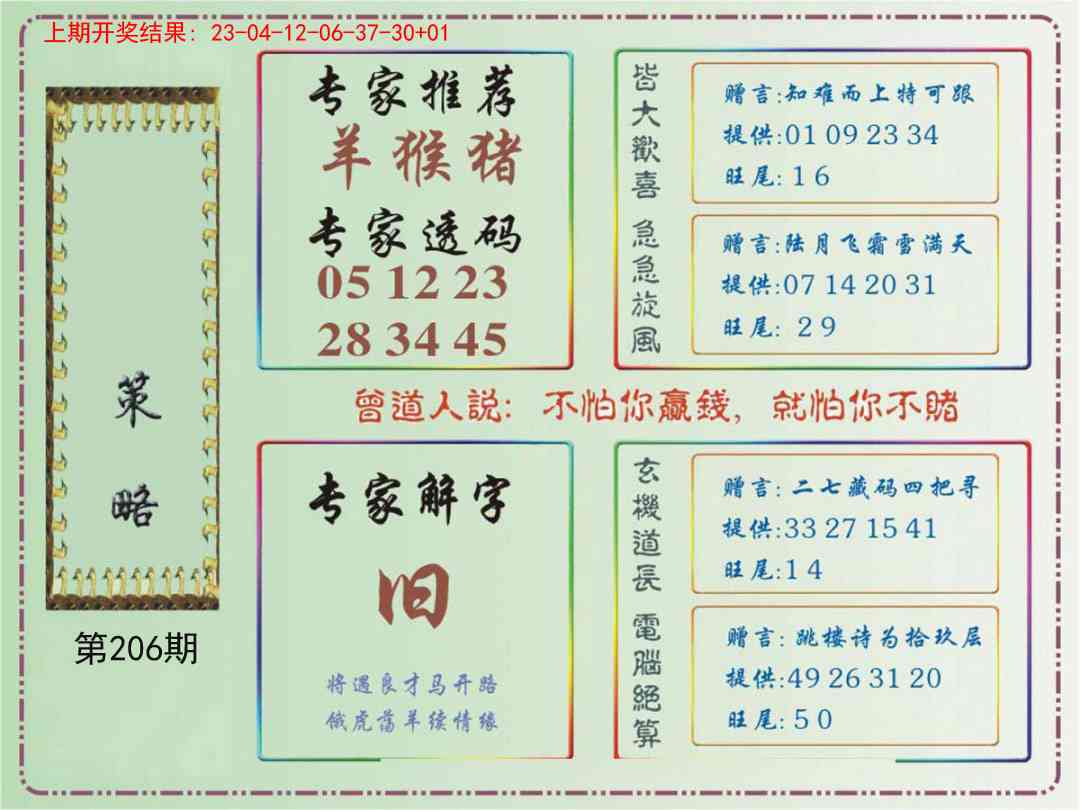 上期开奖结果: 23-04-12-06-37-30+01
策略
第206期
专家推荐
羊猴猪
专家透码
05 12 23
28 34 45
皆大歡喜
赠言:知难而上特可跟
提供:01 09 23 34
旺尾: 1 6
急急旋風
赠言:陆月飞霜雪满天
提供:07 14 20 31
旺尾: 2 9
曾道人説: 不怕你贏錢, 就怕你不賭
专家解字
旧
将遇良才马开路
饿虎荡羊续情缘
玄機道長
赠言: 二七藏码四把寻
提供:33 27 15 41
旺尾:1 4
電腦絕算
赠言: 跳楼诗为拾玖层
提供:49 26 31 20
旺尾: 5 0